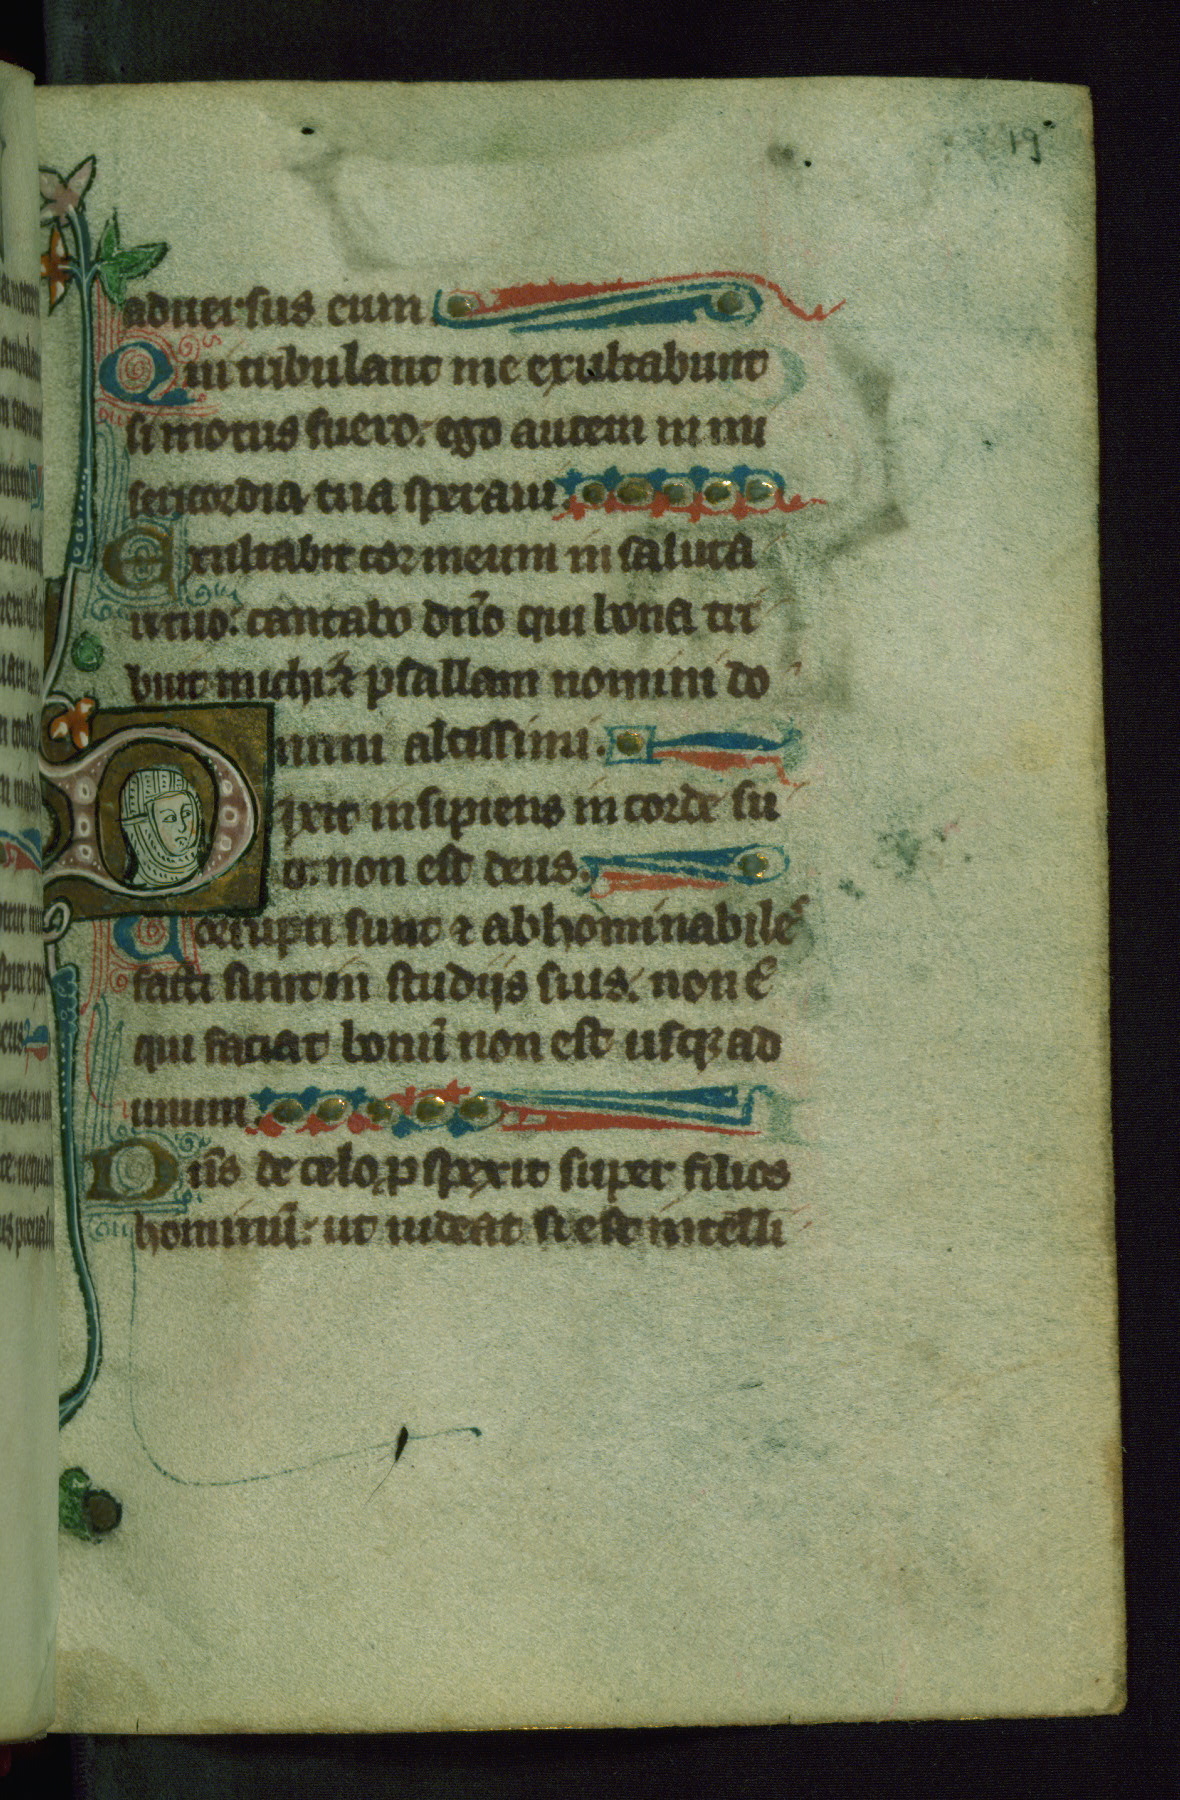 19
aduersus eum.
Qui tribulant me exultabunt
si motus fuero: ego autem in mi
sericordia tua speraui.
Exultabit cor meum in saluta
ri tuo: cantabo dño qui bona tri
buit michi: ⁊ psallam nomini do
mini altissimi.
Dixit insipiens in corde su
o: non est deus.
Corrupti sunt ⁊ abhominabiles
facti sunt in studijs suis: non ē
qui faciat bonū non est usqꝫ ad
unum.
Dñs de celo pspexit super filios
hominū: ut uideat si est intelli